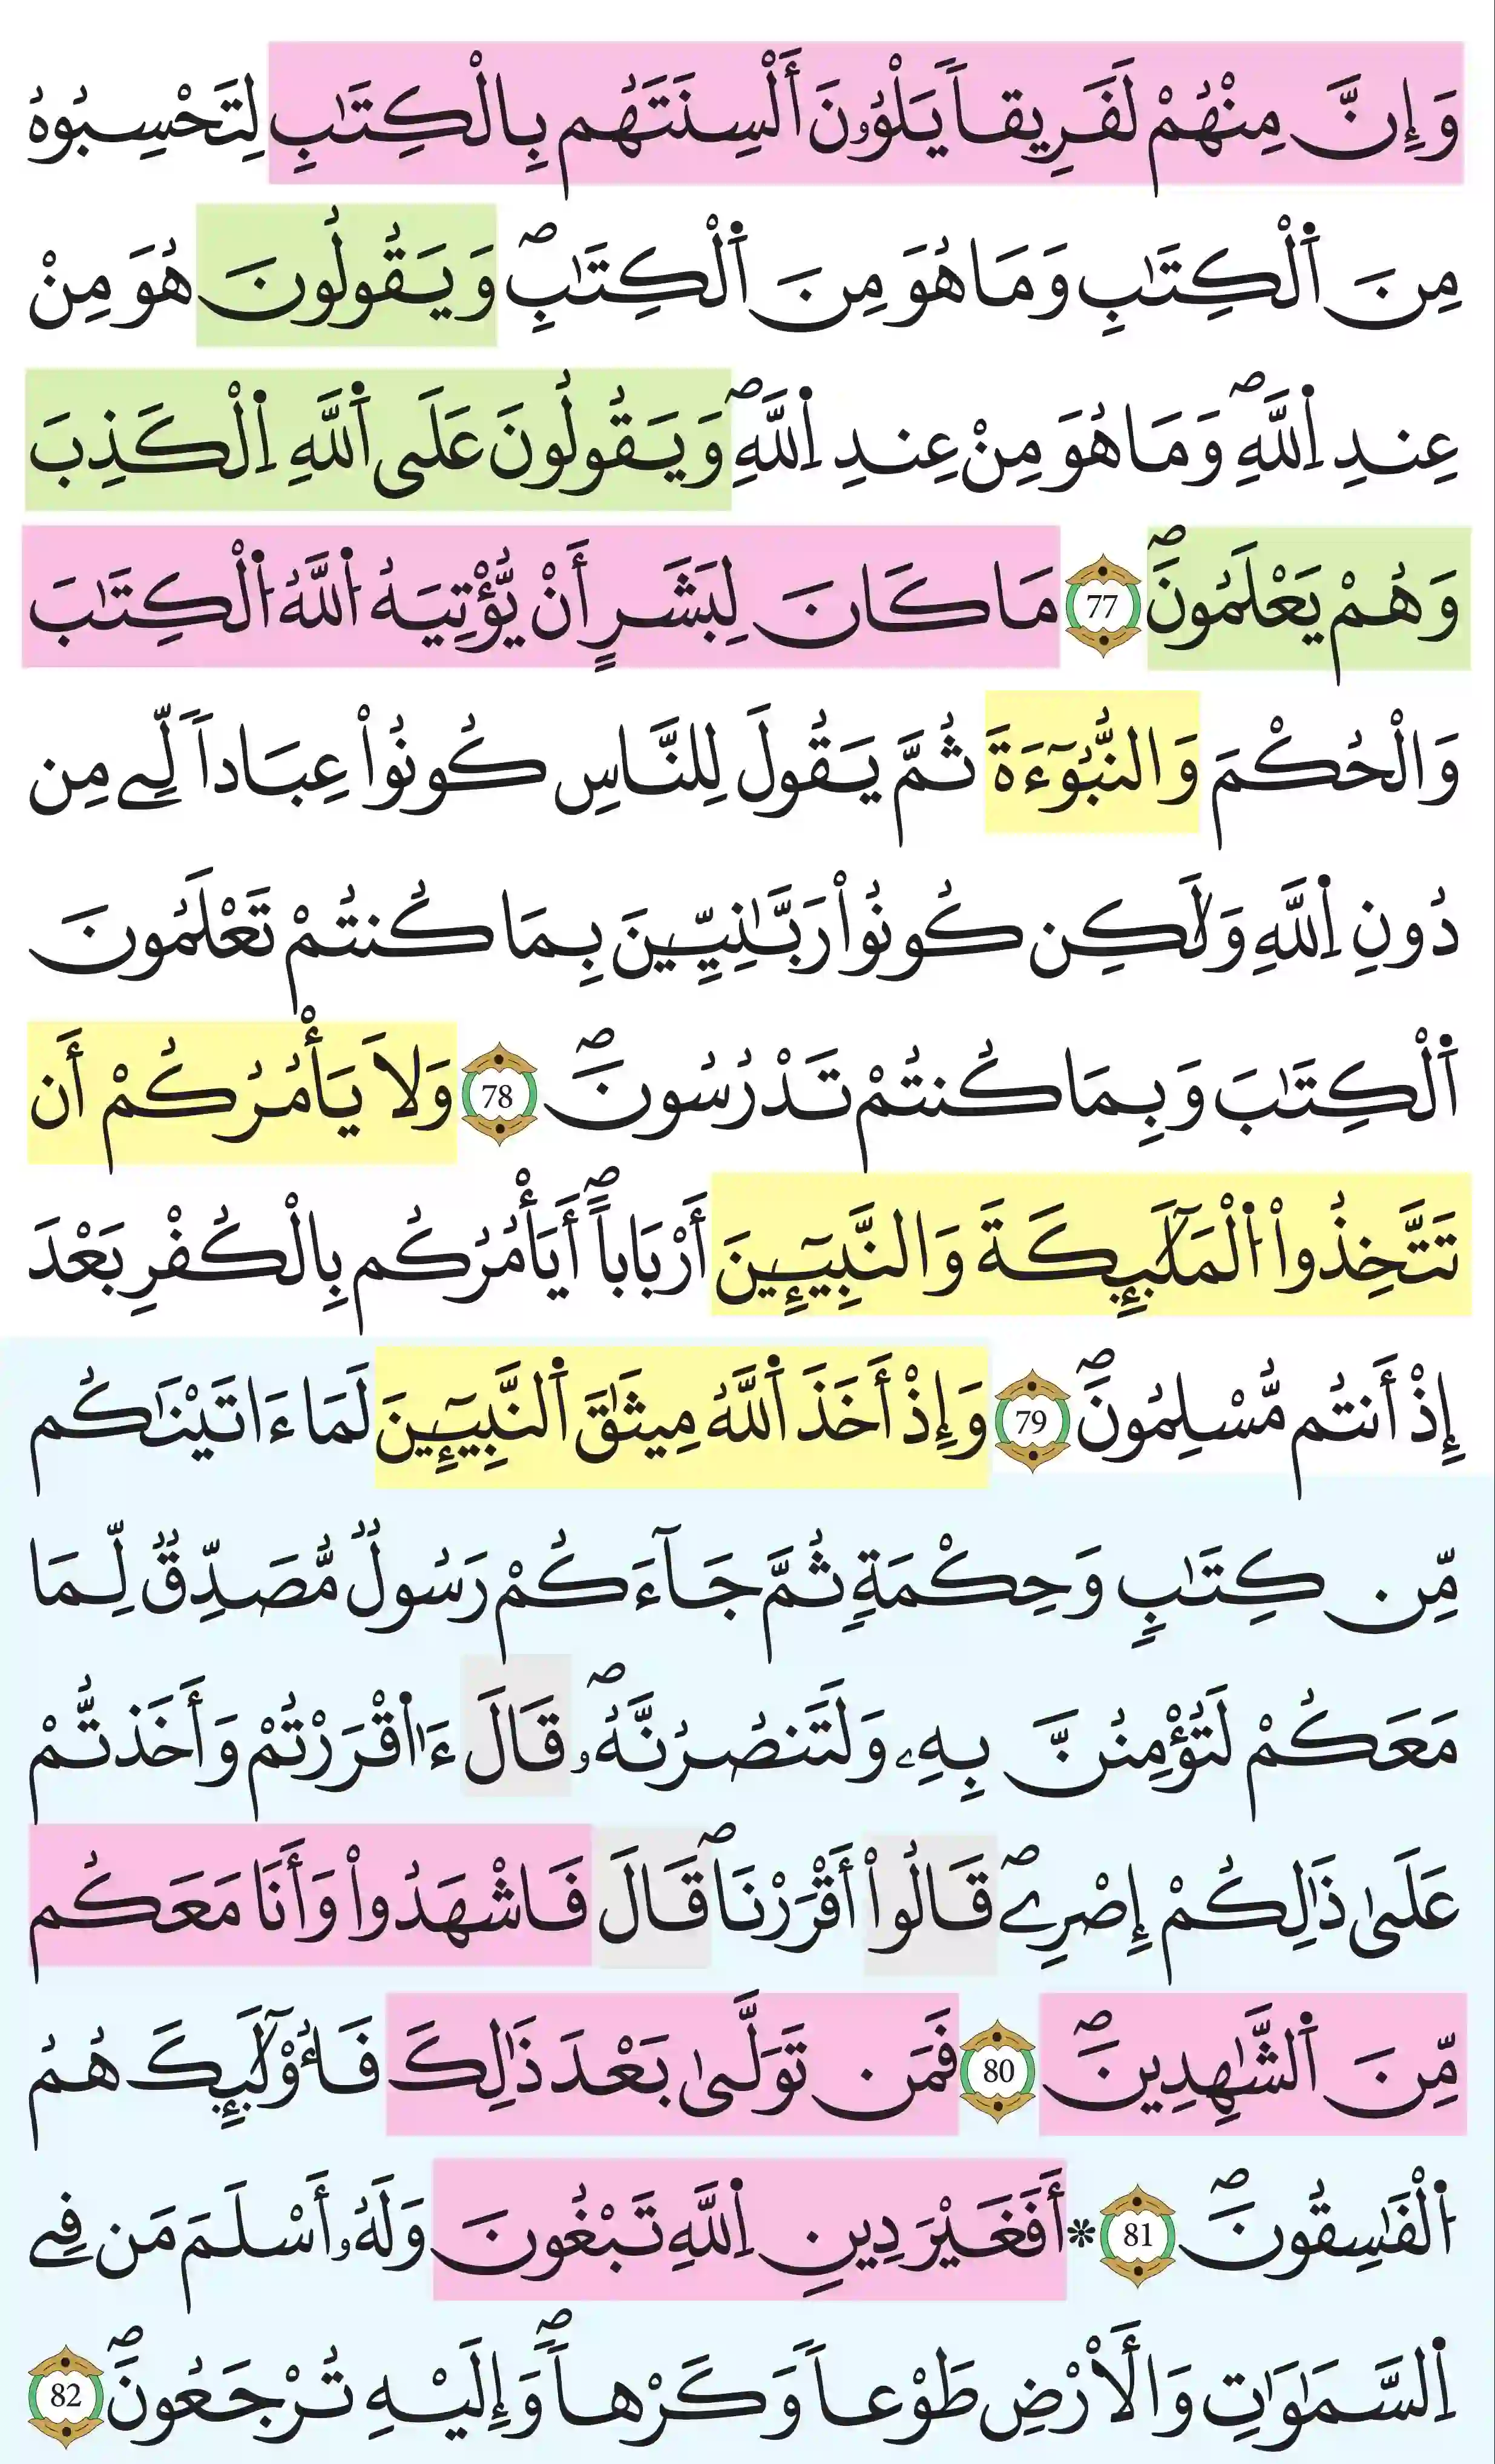 وَإِنَّ مِنْهُمْ لَفَرِيقاٗ يَلْوُۥنَ أَلْسِنَتَهُم بِالْكِتَٰبِ لِتَحْسِبُوهُ
مِنَ اَ۬لْكِتَٰبِ وَمَا هُوَ مِنَ اَ۬لْكِتَٰبِۖ وَيَقُولُونَ هُوَ مِنْ
عِندِ اِ۬للَّهِۖ وَمَا هُوَ مِنْ عِندِ اِ۬للَّهِۖ وَيَقُولُونَ عَلَى اَ۬للَّهِ اِ۬لْكَذِبَ
وَهُمْ يَعْلَمُونَۖ 77 مَا كَانَ لِبَشَرٍ أَنْ يُّؤْتِيَهُ اُ۬للَّهُ اُ۬لْكِتَٰبَ
وَالْحُكْمَ وَالنُّبُوٓءَةَ ثُمَّ يَقُولَ لِلنَّاسِ كُونُواْ عِبَاداٗ لِّے مِن
دُونِ اِ۬للَّهِ وَلَٰكِن كُونُواْ رَبَّٰنِيِّينَ بِمَا كُنتُمْ تَعْلَمُونَ
اَ۬لْكِتَٰبَ وَبِمَا كُنتُمْ تَدْرُسُونَۖ 78 وَلَا يَأْمُرُكُمْ أَن
تَتَّخِذُواْ اُ۬لْمَلَٰٓئِكَةَ وَالنَّبِيٓـِٕينَ أَرْبَاباًۖ أَيَأْمُرُكُم بِالْكُفْرِ بَعْدَ
إِذْ أَنتُم مُّسْلِمُونَۖ 79 وَإِذْ أَخَذَ اَ۬للَّهُ مِيثَٰقَ اَ۬لنَّبِيٓـِٕينَ لَمَا ءَاتَيْنَٰكُم
مِّن كِتَٰبٖ وَحِكْمَةٖ ثُمَّ جَآءَكُمْ رَسُولٞ مُّصَدِّقٞ لِّمَا
مَعَكُمْ لَتُؤْمِنُنَّ بِهِۦ وَلَتَنصُرُنَّهُۥۖ قَالَ ءَآ۬قْرَرْتُمْ وَأَخَذتُّمْ
عَلَىٰ ذَٰلِكُمْ إِصْرِےۖ قَالُواْ أَقْرَرْنَاۖ قَالَ فَاشْهَدُواْ وَأَنَا مَعَكُم
مِّنَ اَ۬لشَّٰهِدِينَۖ 80 فَمَن تَوَلَّىٰ بَعْدَ ذَٰلِكَ فَأُوْلَٰٓئِكَ هُمُ
اُ۬لْفَٰسِقُونَۖ 81 * أَفَغَيْرَ دِينِ اِ۬للَّهِ تَبْغُونَ وَلَهُۥ أَسْلَمَ مَن فِے
اِ۬لسَّمَٰوَٰتِ وَالْأَرْضِ طَوْعاٗ وَكَرْهاٗۖ وَإِلَيْهِ تُرْجَعُونَۖ 82